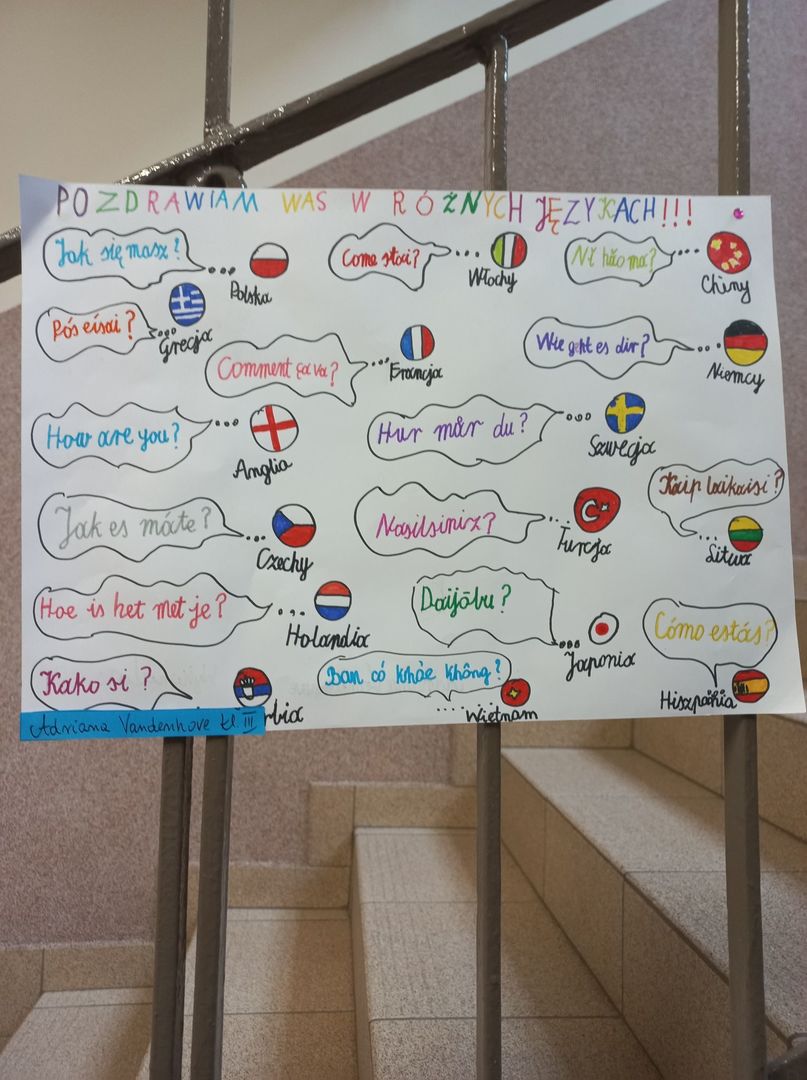 POZDRAWIAM WAS W RÓŻNYCH JĘZYKACH!!!
Jak się masz?
Polska
Come stai?
Włochy
Nǐ hǎo ma?
Chiny
Pós eísai?
Grecja
Comment ça va?
Francja
Wie geht es dir?
Niemcy
How are you?
Anglia
Hur mår du?
Szwecja
Jak es máte?
Czechy
Nasilsinix?
Turcja
Kaip laikaisi?
Litwa
Hoe is het met je?
Holandia
Daijōbu?
Japonia
Cómo estás?
Hiszpania
Kako si?
rbia
Ban có khỏe không?
Wietnam
Adriana Vandenhove kl III